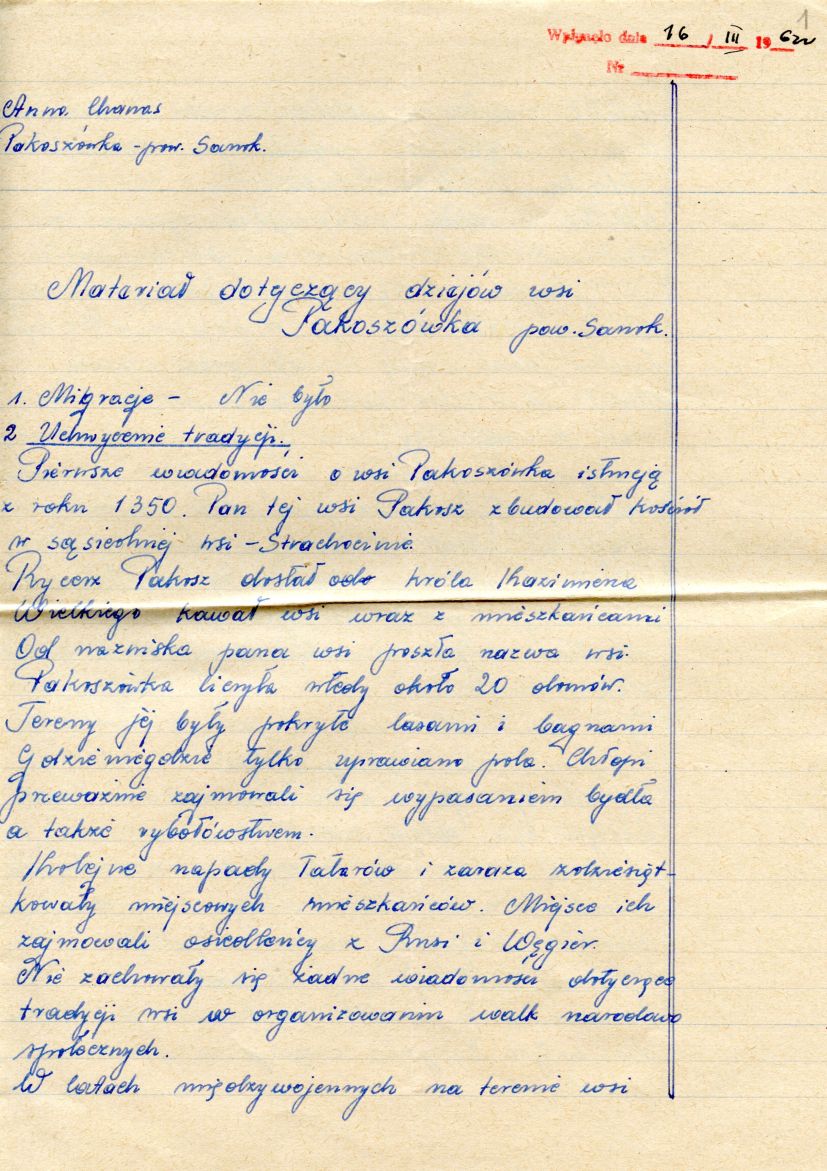 1
Wpłynęło dnia 16 / III 19 62
Nr
Anna Chanas
Pakoszówka - pow. Sanok.
Materiał dotyczący dziejów wsi
Pakoszówka pow. Sanok.
1. Migracje - Nie było
2 Uchwycenie tradycji.
Pierwsze wiadomości o wsi Pakoszówka istnieją
z roku 1350. Pan tej wsi Pakosz zbudował kościół
w sąsiedniej wsi - Strachocinie.
Rycerz Pakosz dostał od króla Kazimierza
Wielkiego kawał wsi wraz z mieszkańcami
Od nazwiska pana wsi poszła nazwa wsi.
Pakoszówka liczyła wtedy około 20 domów.
Tereny jej były pokryte lasami i bagnami
Gdzieniegdzie tylko uprawiano pola. Chłopi
przeważnie zajmowali się wypasaniem bydła
a także rybołówstwem.
Kolejne napady Tatarów i zaraza zdziesiąt-
kowały miejscowych mieszkańców. Miejsce ich
zajmowali osiedleńcy z Rusi i Węgier.
Nie zachowały się żadne wiadomości dotyczące
tradycji wsi w organizowaniu walk narodowo
społecznych.
W latach międzywojennych na terenie wsi